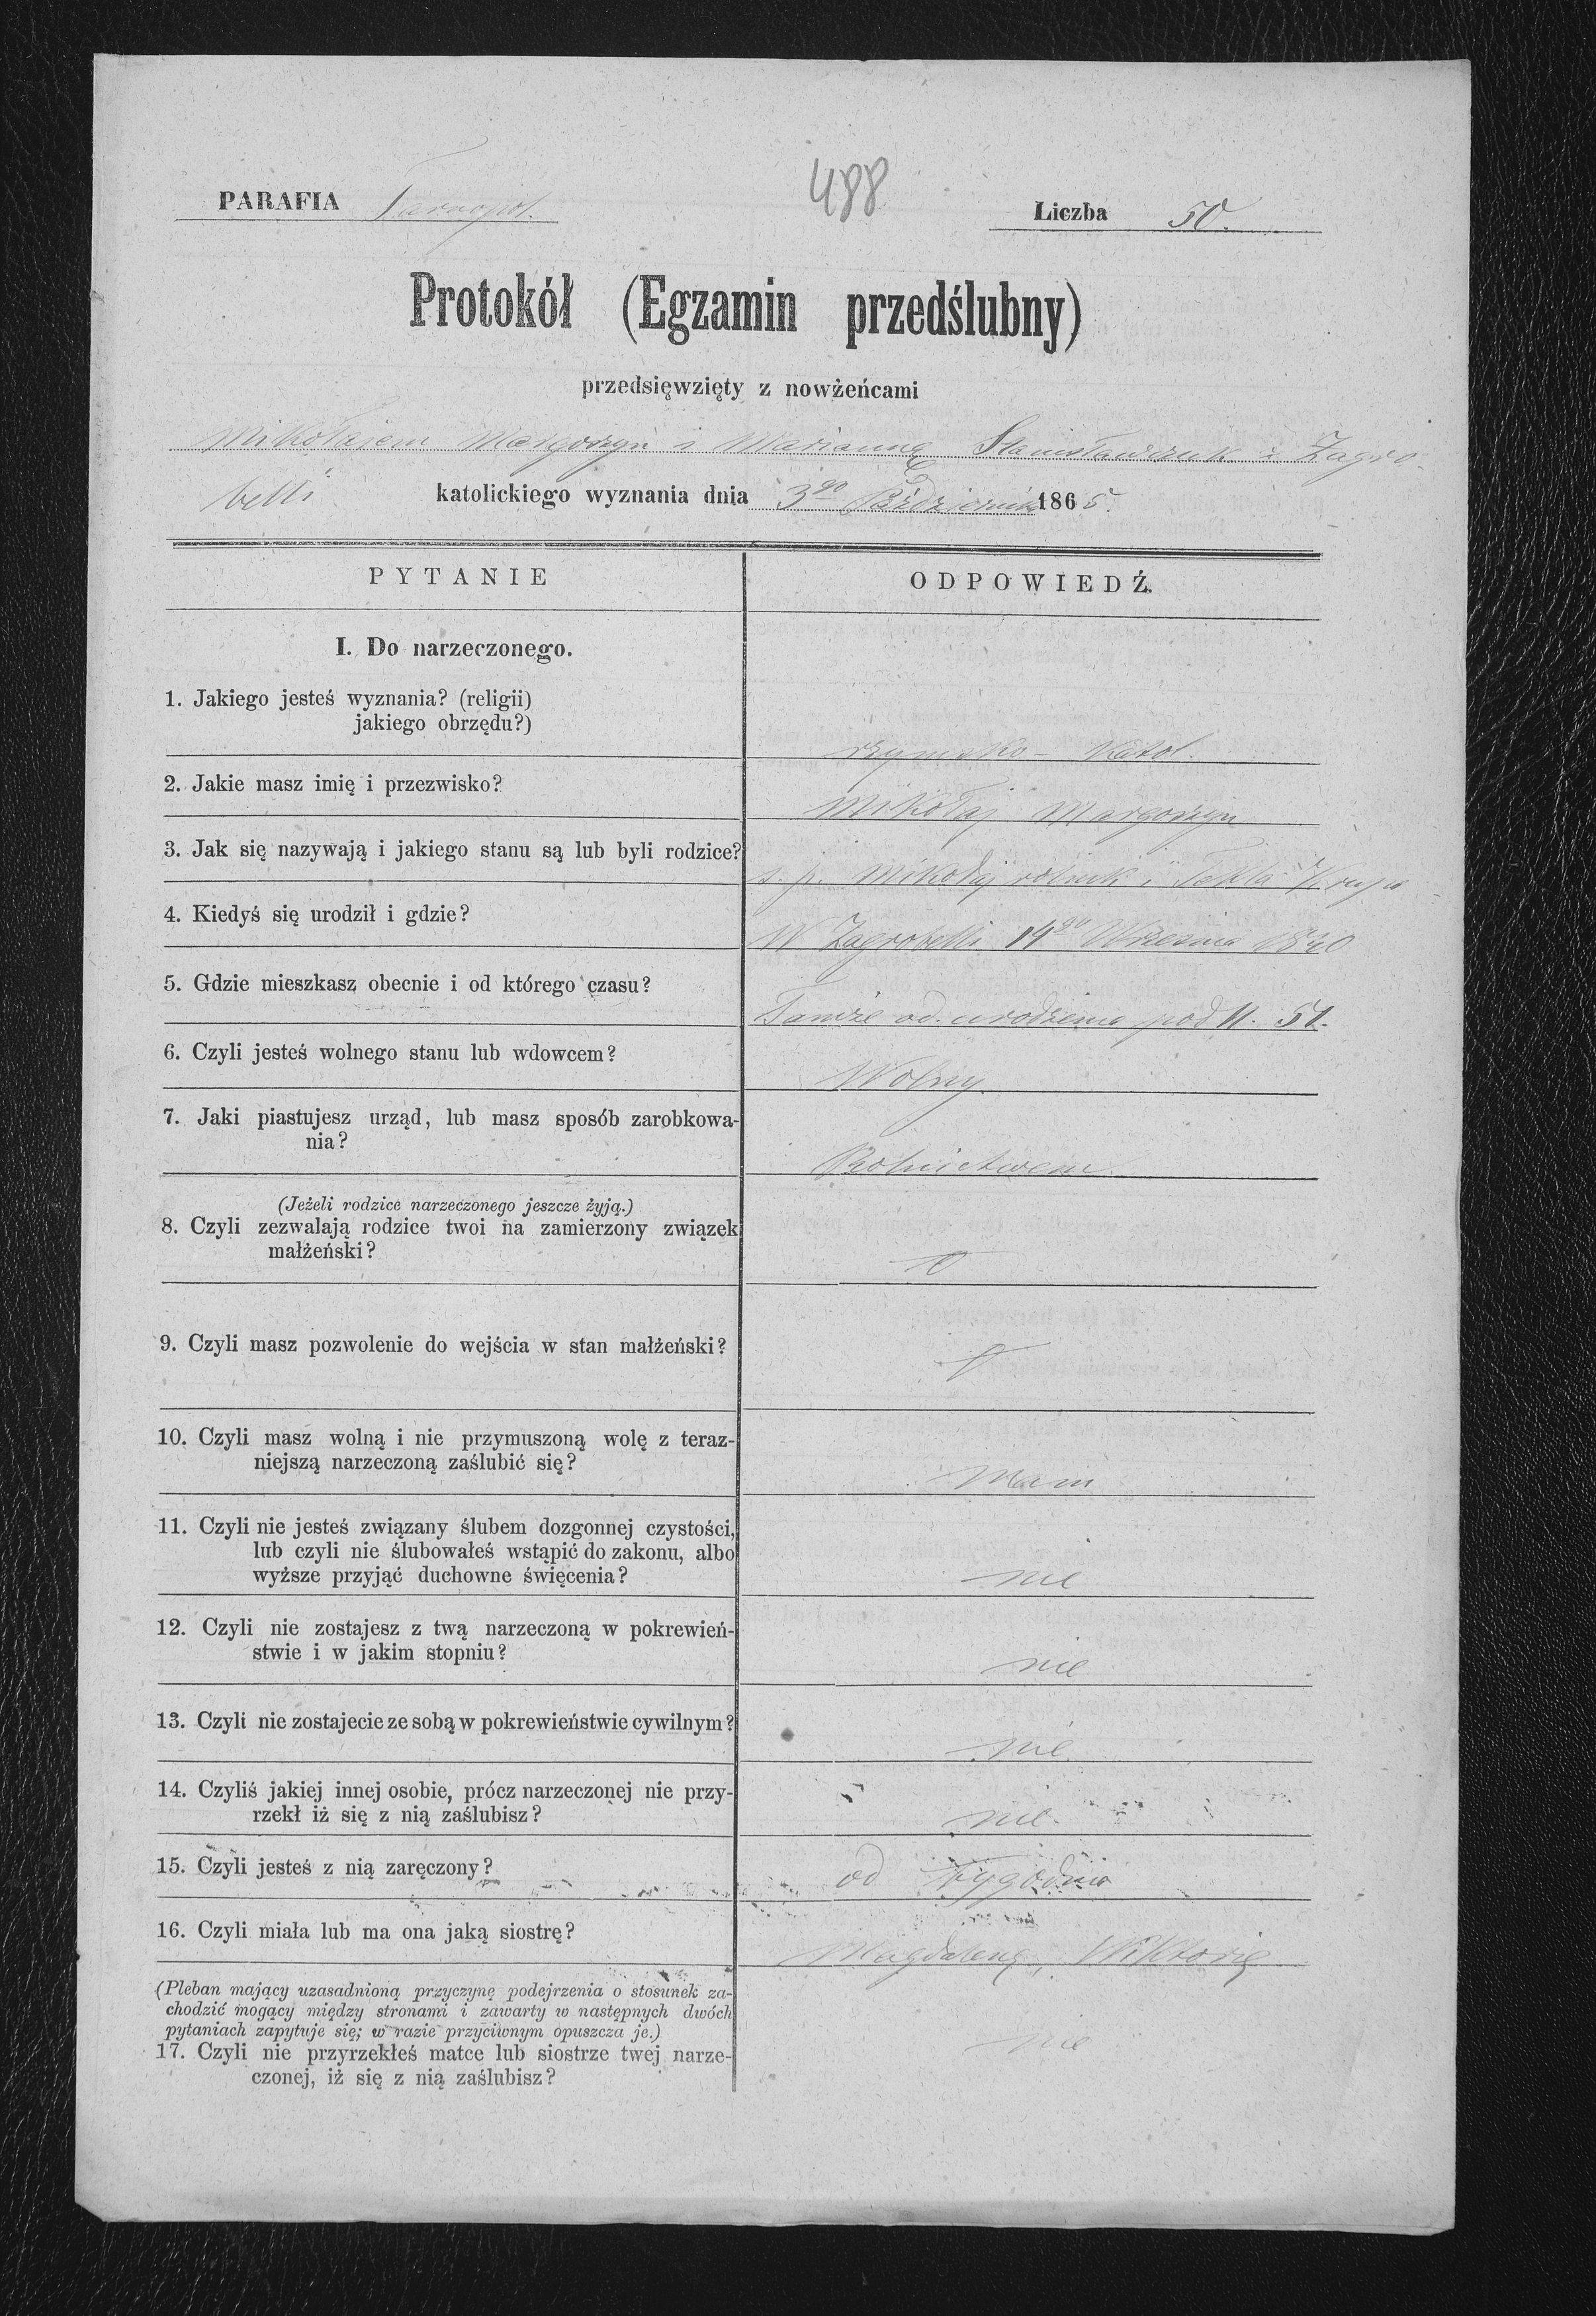 488
PARAFIA Tarnopol.
Liczba 50.
Protokół (Egzamin przedślubny)
przedsięwzięty z nowżeńcami
Mikołajem Margoszyn i Marianną Stanisławczuk z Zagro-
belli katolickiego wyznania dnia 3go Październik 1865.
PYTANIE
ODPOWIEDŹ.
I. Do narzeczonego.
1. Jakiego jesteś wyznania? (religii)
jakiego obrzędu?)
rzymsko- katol.
2. Jakie masz imię i przezwisko?
Mikołaj Margoszyn
3. Jak się nazywają i jakiego stanu są lub byli rodzice?
s. p. Mikołaj rolnik i Tekla Krupa
4. Kiedyś się urodził i gdzie?
W Zagrobelli 14go Września 1840
5. Gdzie mieszkasz obecnie i od którego czasu?
Tamże od urodzenia pod N. 51.
6. Czyli jesteś wolnego stanu lub wdowcem?
Wolny
7. Jaki piastujesz urząd, lub masz sposób zarobkowa-
nia?
Rolnictwem
(Jeżeli rodzice narzeczonego jeszcze żyją.)
8. Czyli zezwalają rodzice twoi na zamierzony związek
małżeński?
9. Czyli masz pozwolenie do wejścia w stan małżeński?
10. Czyli masz wolną i nie przymuszoną wolę z teraz-
niejszą narzeczoną zaślubić się?
Mam
11. Czyli nie jesteś związany ślubem dozgonnej czystości,
lub czyli nie ślubowałeś wstąpić do zakonu, albo
wyższe przyjąć duchowne święcenia?
nie
12. Czyli nie zostajesz z twą narzeczoną w pokrewień-
stwie i w jakim stopniu?
nie
13. Czyli nie zostajecie ze sobą w pokrewieństwie cywilnym?
nie
14. Czyliś jakiej innej osobie, prócz narzeczonej nie przy-
rzekł iż się z nią zaślubisz?
nie.
15. Czyli jesteś z nią zaręczony?
od tygodnia
16. Czyli miała lub ma ona jaką siostrę?
Magdalenę, Wiktorię
(Pleban mający uzasadnioną przyczynę podejrzenia o stosunek za-
chodzić mogący między stronami i zawarty w następnych dwóch
pytaniach zapytuje się; w razie przyciwnym opuszcza je.)
17. Czyli nie przyrzekłeś matce lub siostrze twej narze-
czonej, iż się z nią zaślubisz?
nie